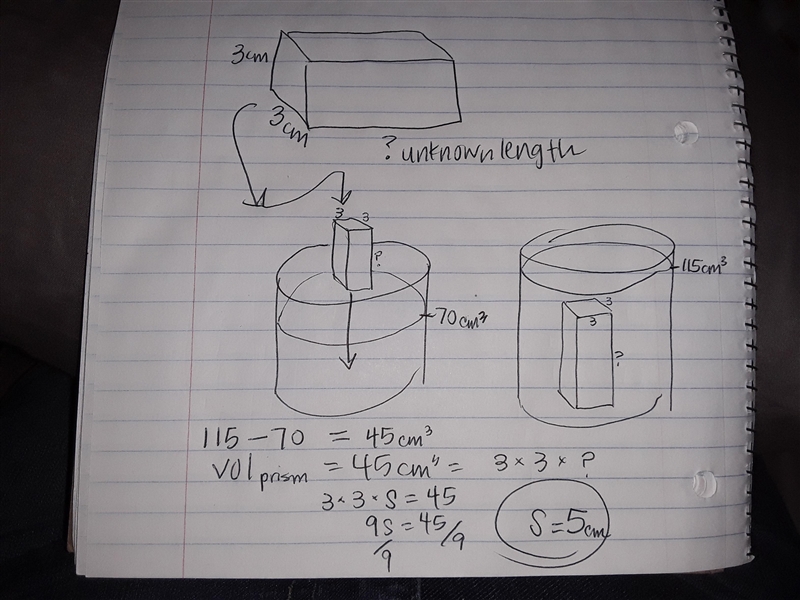 3cm
3cm
? unknown length
3 3
?
70cm³
115cm³
3
3
?
115 - 70 = 45cm³
Vol prism = 45cm³ = 3 × 3 × ?
3 × 3 × S = 45
9S = 45/9
/9
S = 5cm